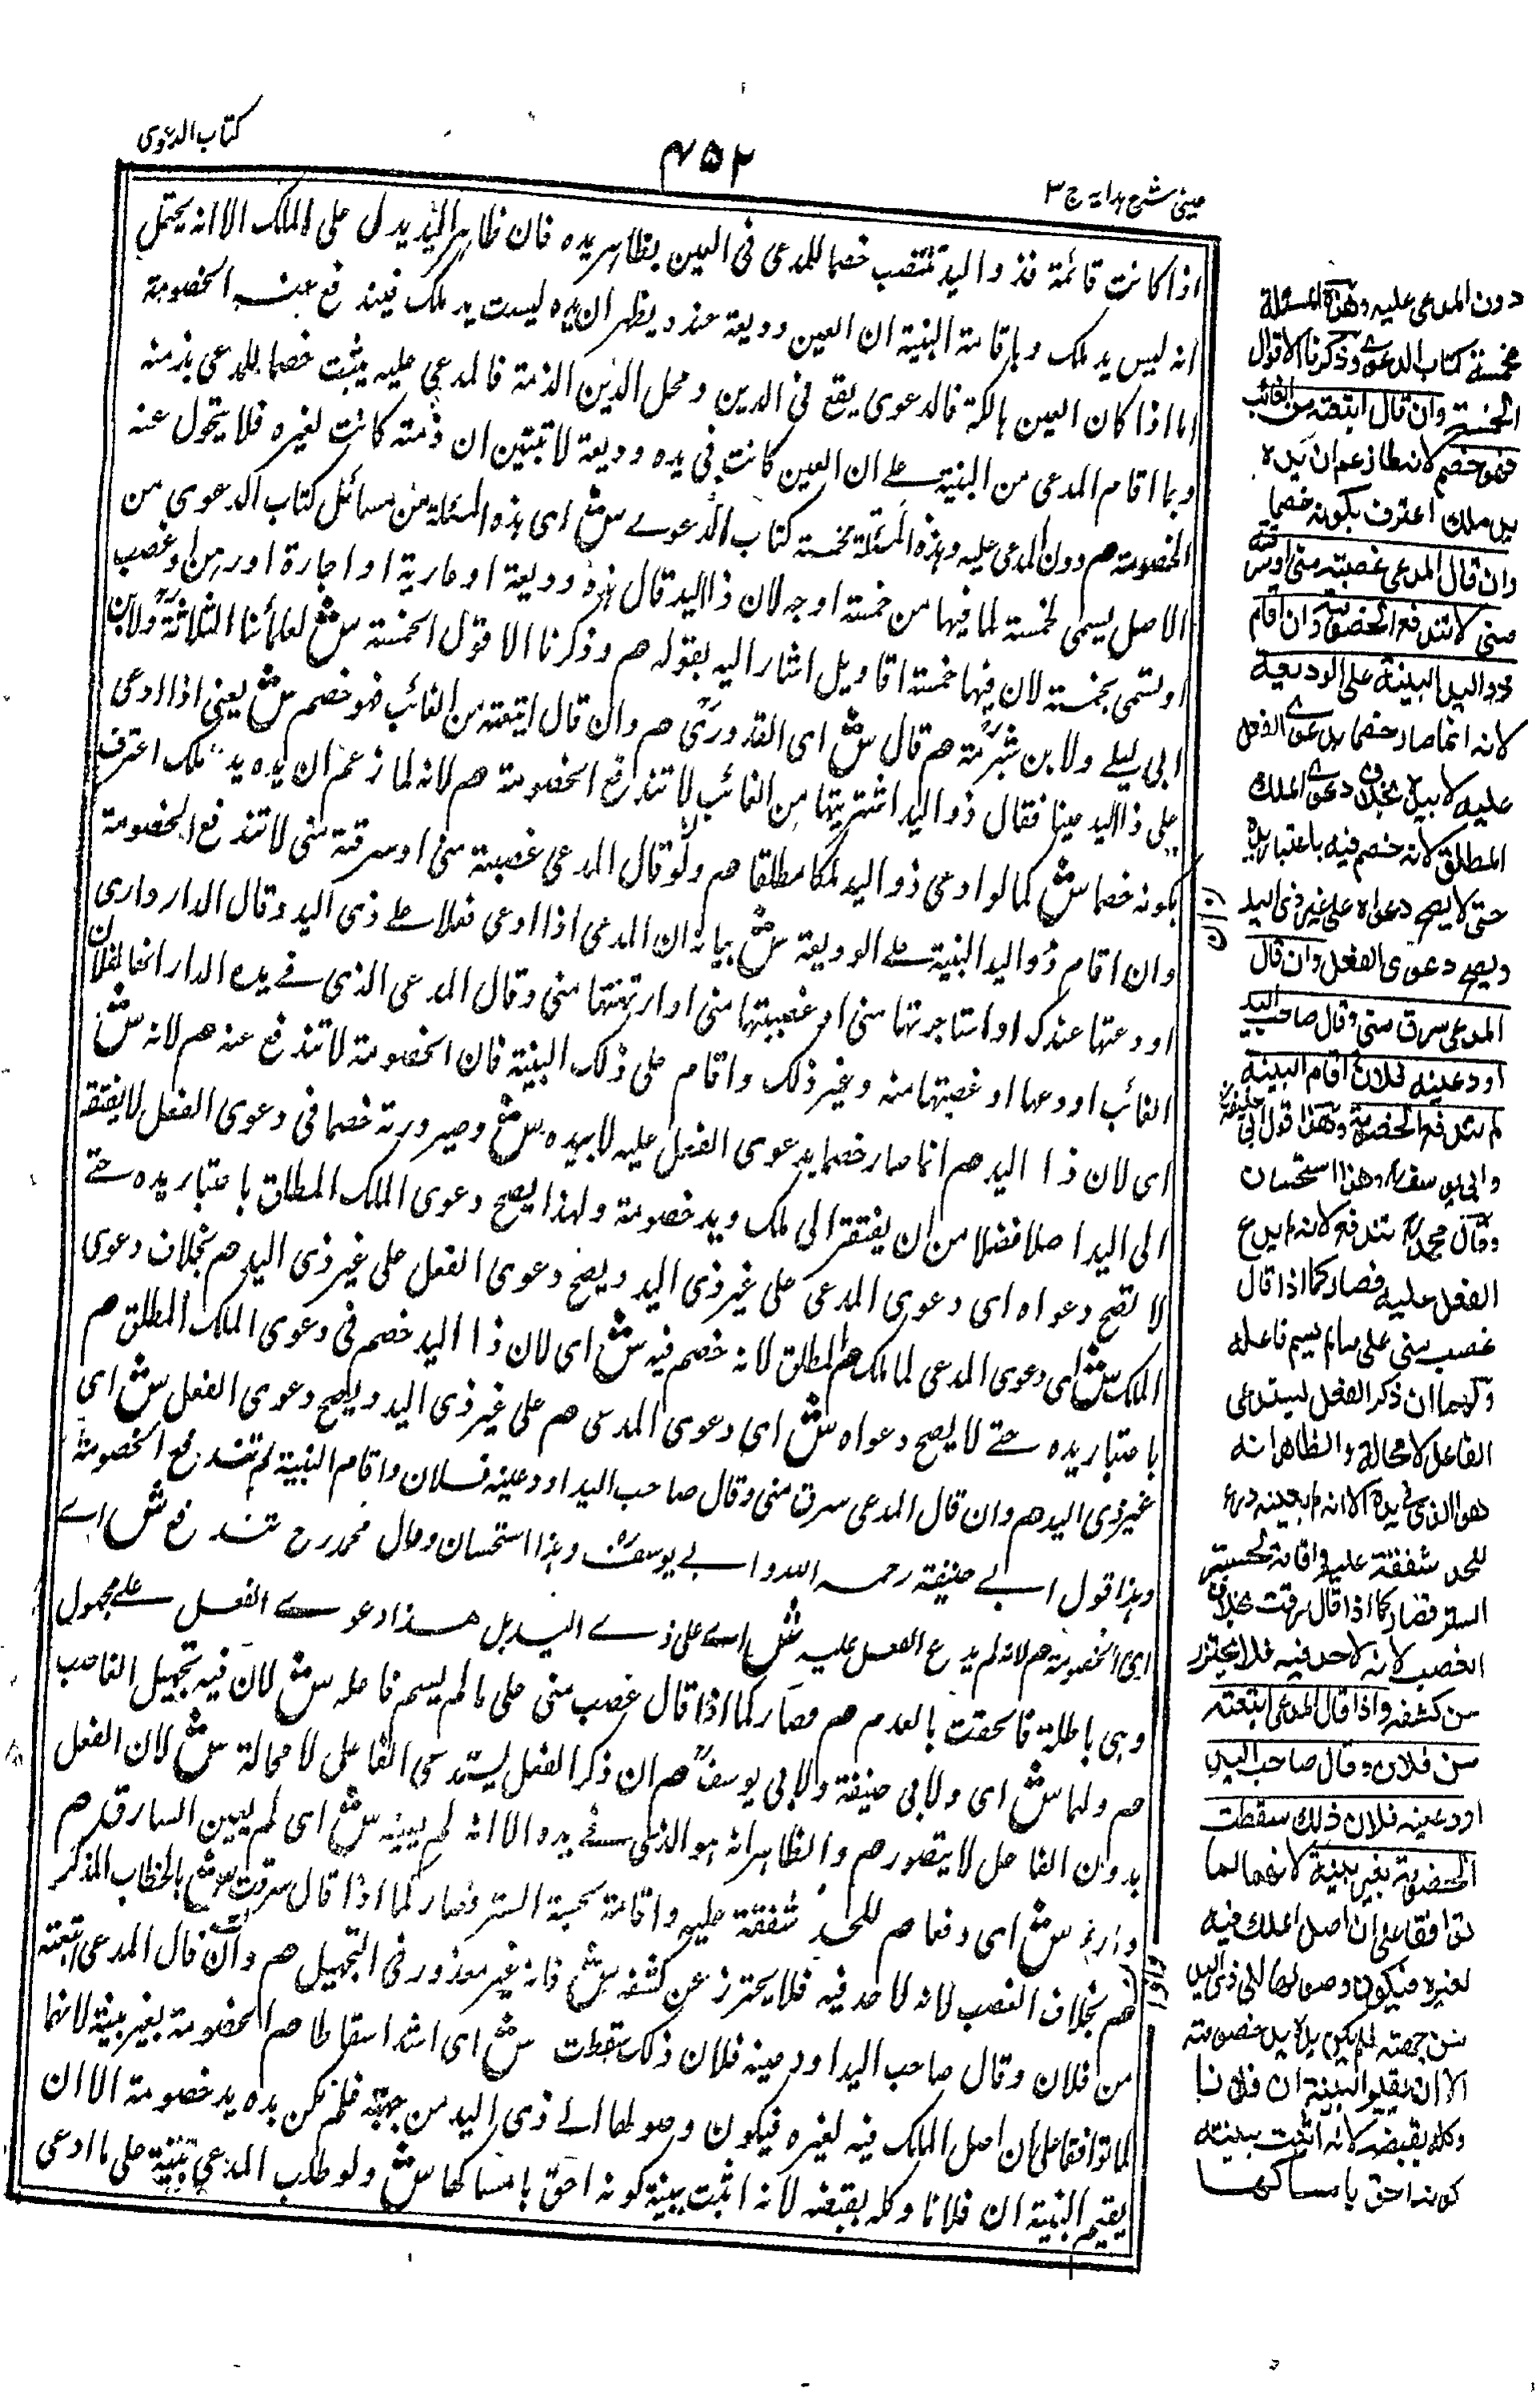 كتاب الدعوى
٤٥٢
عینی شرح ہدایہ ج ۳
اذا كانت قائمة فذو اليد تنتصب خصما للمدعى فى العين بظاهر يده فان ظاهر اليد يدل على الملك الا انه يحتمل
انه ليس يد ملك وباقامة البنية ان العين وديعة عنده يظهر ان يده ليست يد ملك فيندفع عنه الخصومة
اما اذا كان العين هالكة فالدعوى يقع فى الدين ومحل الدين الذمة فالمدعى عليه يثبت خصما للمدعى بذمته
وبما اقام المدعى من البنية على ان العين كانت فى يده وديعة لا تبتين ان ذمته كانت لغيره فلا يتحول عنه
الخصومة هم دون المدعى عليه وهذه المسئلة مخمسة كتاب الدعوى ش اى هذه المسئلة من مسائل كتاب الدعوى من
الاصل يسمى مخمسة لما فيها من خمسة اوجه لان ذا اليد قال هذه وديعة او عارية او اجارة او رهن او غصب
او تسمى بخمسة لان فيها خمسة اقاويل اشار اليه بقوله هم وذكرنا الاقوال الخمسة ش لعلمائنا الثلاثة ولابن
ابى ليلى ولابن شبرمة هم قال ش اى القدورى هم وان قال ابتعته من الغائب فهو خصم ش يعنى اذا ادعى
على ذا اليد عينا فقال ذو اليد اشتريتها من الغائب لا تندفع الخصومة هم لانه لما زعم ان يده يد ملك اعترف
بكونه خصما ش كما لو ادعى ذو اليد ملكا مطلقا هم ولو قال المدعى غصبته منى او سرقته منى لا تندفع الخصومة
وان اقام ذو اليد البنية على الوديعة ش بيانه ان المدعى اذا ادعى فعلا على ذى اليد وقال الدار دارى
او دعتها عندك او استاجرتها منى او غصبيتها منى او ارتهنتها منى وقال المدعى الذى فى يده الدار انها لفلان
الغائب اودعها او غصبتها منه وغير ذلك واقام على ذلك البنية فان الخصومة لا تندفع عنه هم لانه ش
اى لان ذا اليد هم انما صار خصما بدعوى الفعل عليه لا بيده ش وصيرورته خصما فى دعوى الفعل لا يفتقد
الى اليد اصلا فضلا من ان يفتقر الى ملك ويد خصومة ولهذا يصح دعوى الملك المطلق باعتبار يده حتى
لا تصح دعواه اى دعوى المدعى على غير ذى اليد ويصح دعوى الفعل على غير ذى اليد هم بخلاف دعوى
الملك ش اى دعوى المدعى لما ملك هم المطلق لانه خصم فيه ش اى لان ذا اليد خصم فى دعوى الملك المطلق هم
باعتبار يده حتى لا يصح دعواه ش اى دعوى المدعى هم على غير ذى اليد ويصح دعوى الفعل ش اى
غير ذى اليد هم وان قال المدعى سرق منى وقال صاحب اليد اودعنيه فلان واقام البنية لم تندفع الخصومة
وهذا قول ابى حنيفة رحمه الله وابى يوسف وهذا استحسان وقال محمد رح تندفع ش اى
اى الخصومة هم لانه لم يدع الفعل عليه ش اى على ذى اليد بل هذا دعوى الفعل على مجهول
وهى باطلة فالحقت بالعدم هم فصار كما اذا قال غصب منى على ما لم يسم فاعله ش لان فيه تجهيل الغاصب
هم ولهما ش اى ولابى حنيفة ولابى يوسف هم ان ذكر الفعل يستدعى الفاعل لا محالة ش لان الفعل
بدون الفاعل لا يتصور هم والظاهر انه هو الذى فى يده الا انه لم يعينه ش اى لم يعين السارق هم
درء ش اى دفعا هم للحد شفقة عليه واقامة لحسبة الستر فصار كما اذا قال سرقت ش بالخطاب المذكر
هم بخلاف الغصب لانه لا حد فيه فلا يحترز عن كشفه ش فانه غير معذور فى التجهيل هم وان قال المدعى ابتعته
من فلان وقال صاحب اليد اودعنيه فلان ذلك سقطت ش اى اشد اسقاطا هم الخصومة بغير بينة لانهما
لما توافقا على ان اصل الملك فيه لغيره فيكون وصولها الى ذى اليد من جهته فلم تكن يده يد خصومة الا ان
يقيم البنية ان فلانا وكله بقبضه لانه اثبت ببينة كونه احق بامساكها ش ولو طلب المدعى بنية على ما ادعى
دون المدعى عليه وهذه المسئلة
مخمسة كتاب الدعوى وذكرنا الاقوال
الخمسة وان قال ابتعته من الغائب
فهو خصم لانه لما زعم ان يده
يد ملك اعترف بكونه خصما
وان قال المدعى غصبته منى او سرقته
منى لا تندفع الخصومة وان اقام
ذو اليد البينة على الوديعة
لانه انما صار خصما بدعوى الفعل
عليه لا بيده بخلاف دعوى الملك
المطلق لانه خصم فيه باعتبار يده
حتى لا يصح دعواه على غير ذى اليد
ويصح دعوى الفعل وان قال
المدعى سرق منى وقال صاحب اليد
اودعنيه فلان واقام البينة
لم تندفع الخصومة وهذا قول ابى حنيفة
وابى يوسف وهذا استحسان
وقال محمد تندفع لانه لم يدع
الفعل عليه فصار كما اذا قال
غصب منى على ما لم يسم فاعله
ولهما ان ذكر الفعل يستدعى
الفاعل لا محالة والظاهر انه
هو الذى فى يده الا انه لم يعينه درء
للحد شفقة عليه واقامة لحسبة
الستر فصار كما اذا قال سرقت بخلاف
الغصب لانه لا حد فيه فلا يحترز
عن كشفه واذا قال المدعى ابتعته
من فلان وقال صاحب اليد
اودعنيه فلان ذلك سقطت
الخصومة بغير بينة لانهما لما
توافقا على ان اصل الملك فيه
لغيره فيكون وصولها الى ذى اليد
من جهته فلم يكن يده يد خصومة
الا ان يقيم البينة ان فلانا
وكله بقبضه لانه اثبت ببينته
كونه احق بامساكها